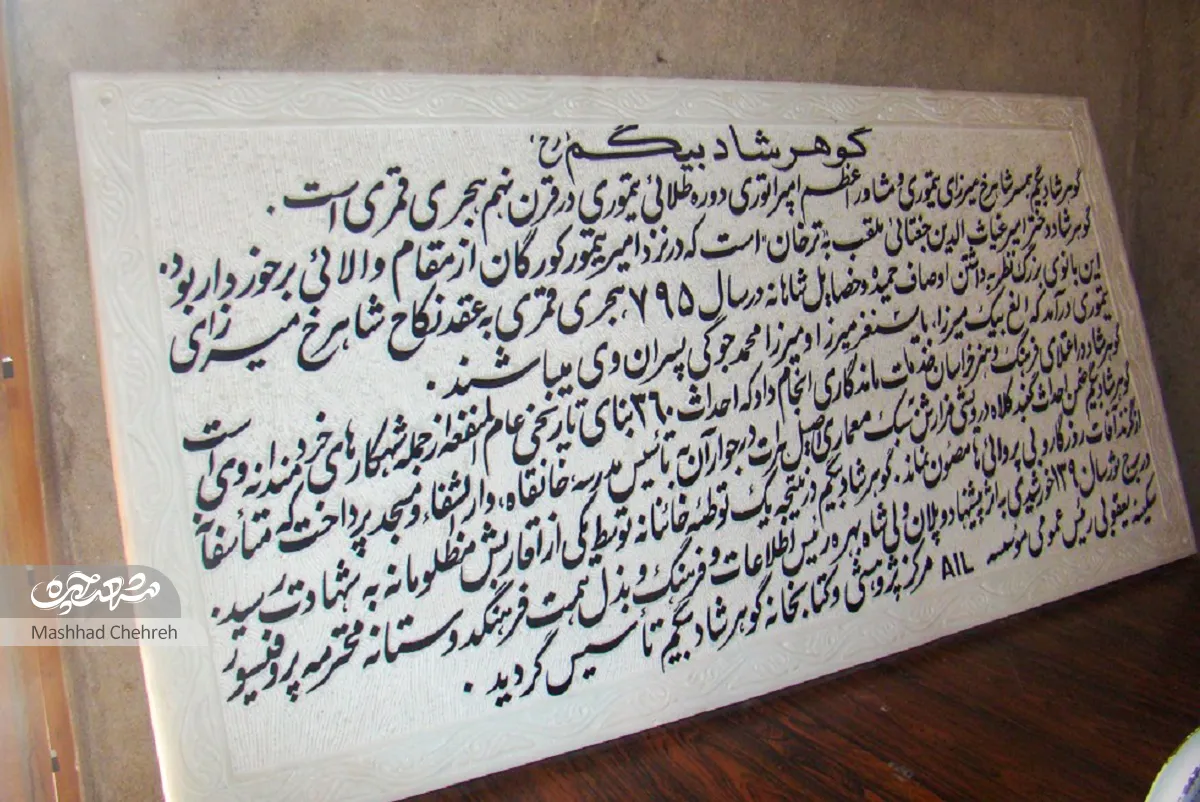 گوهرشاد بیگم (رح)
گوهرشاد بیگم همسر شاهرخ میرزای تیموری و مشاور اعظم امپراتوری دوره طلائی تیموری در قرن نهم هجری قمری است.
گوهرشاد دختر امیر غیاث الدین جغتائی ملقب به ترخان است که در نزد امیر تیمور کورگان از مقام والائی برخوردار بود.
این بانوی بزرگ نظر به داشتن اوصاف حمیده و خصایل شاهانه در سال ۷۹۵ هجری قمری به عقد نکاح شاهرخ میرزای
تیموری درآمد که الغ بیک میرزا، بایسنغر میرزا و میرزا محمد جوکی پسران وی میباشند.
گوهرشاد در اعتلای فرهنگ و هنر خراسان خدمات ماندگاری انجام داد که احداث ۳۶۰ بنای تاریخی عام المنفعه از جمله شهکارهای خردمندانه وی است
گوهرشاد بیگم ضمن احداث گنبد کلاه درویشی مزارش سبک معماری اصیل هرات در جوار آن به تأسیس مدرسه خانقاه، دارالشفاء و مسجد پرداخت که متأسفانه
از گزند آفات روزگار و بی پروائی ها مصون نماند. گوهرشاد بیگم در نتیجه یک توطئه خائنانه توسط یکی از اقاربش مظلومانه به شهادت رسید.
در سال ۱۳۹۰ خورشیدی به اثر پیشنهاد و پلان ولی شاه بهره رئیس اطلاعات و فرهنگ و بذل همت فرهنگدوستانه محترمه پروفیسور
سکینه یعقوبی رئیس عمومی مؤسسه AIL مرکز پژوهشی و کتابخانه گوهرشاد بیگم تأسیس گردید.
مشهد چهره
Mashhad Chehreh